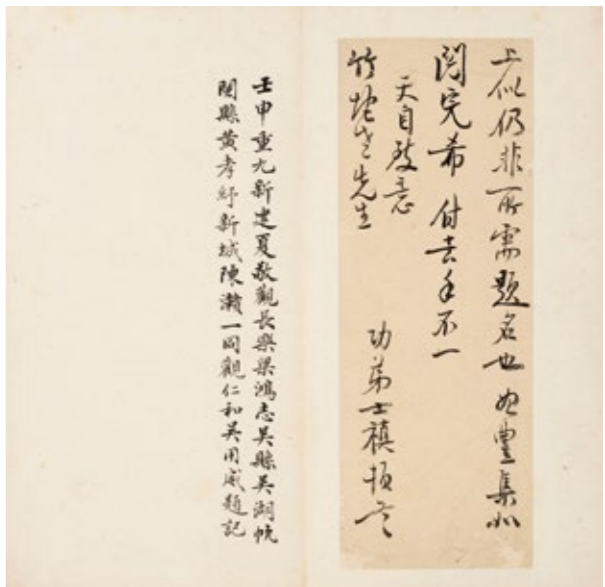 上似仍非所需題名也如豐集如
閱完希付去手不一
天自致意
竹垞老先生
功弟士禛頓首
壬申重九新建夏敬觀長樂梁鴻志吳縣吳湖帆
閩縣黃孝紓新城陳灨一同觀仁和吳用威題記